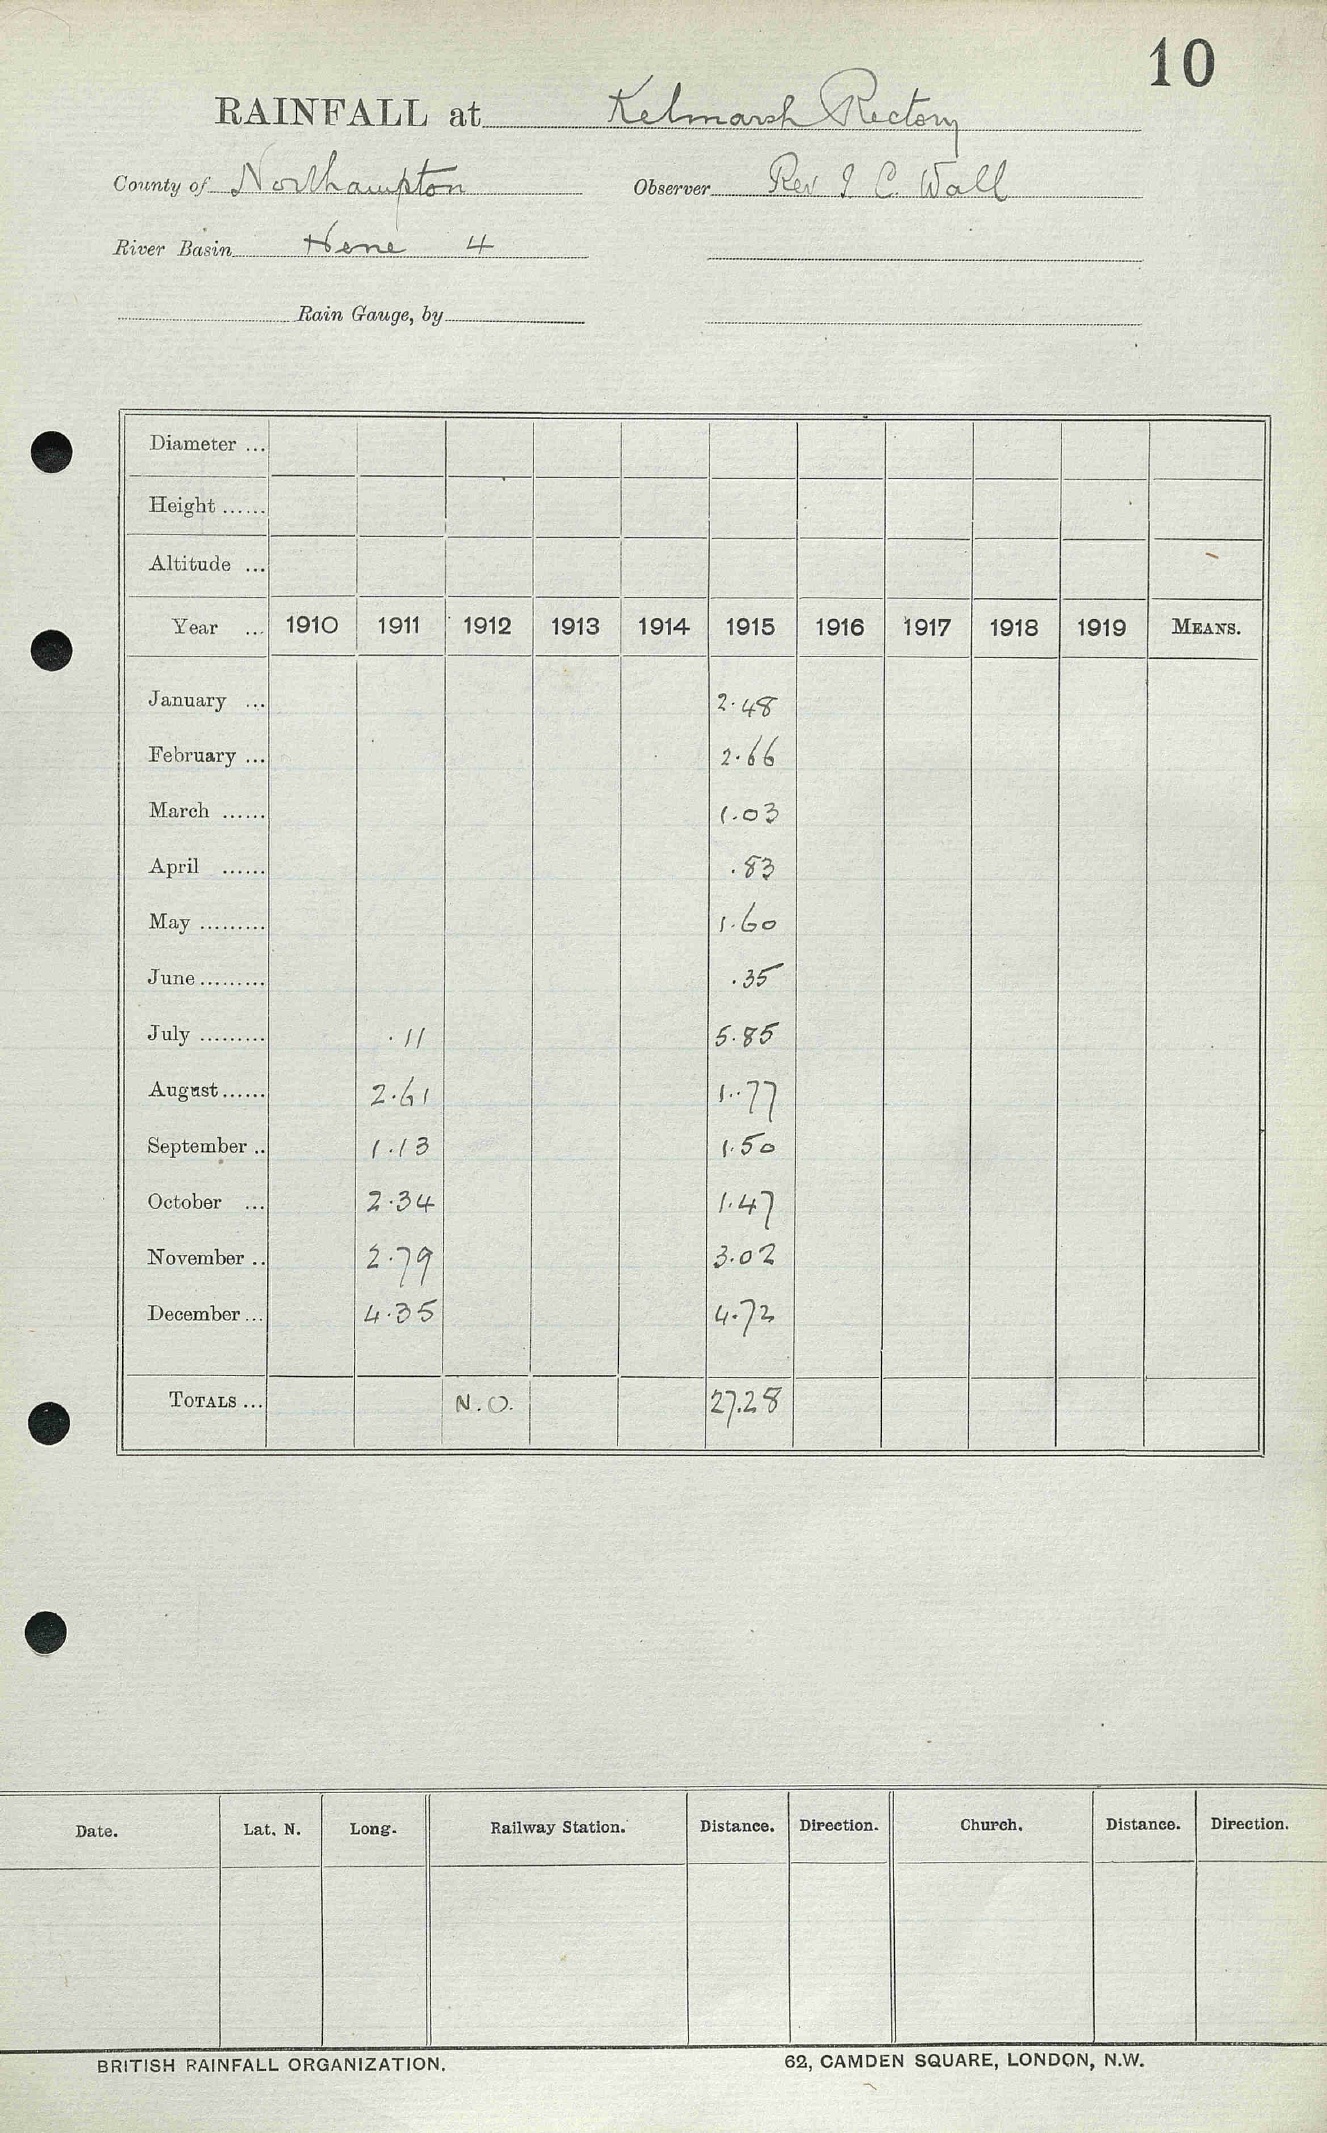 10
RAINFALL at Kelmarsh Rectory
County of Northampton Observer Rev I C. Wall
River Basin Nene 4
Rain Gauge, by
Diameter ...
Height ......
Altitude ...
Year ... 1910 1911 1912 1913 1914 1915 1916 1917 1918 1919 MEANS.
January ... 2.48
February ... 2.66
March ...... 1.03
April ...... .83
May ......... 1.60
June ......... .35
July ......... .11 5.85
August ...... 2.61 1.77
September .. 1.13 1.50
October ... 2.34 1.47
November .. 2.79 3.02
December ... 4.35 4.72
TOTALS ... N.O. 27.28
Date. Lat. N. Long. Railway Station. Distance. Direction. Church. Distance. Direction.
BRITISH RAINFALL ORGANIZATION. 62, CAMDEN SQUARE, LONDON, N.W.